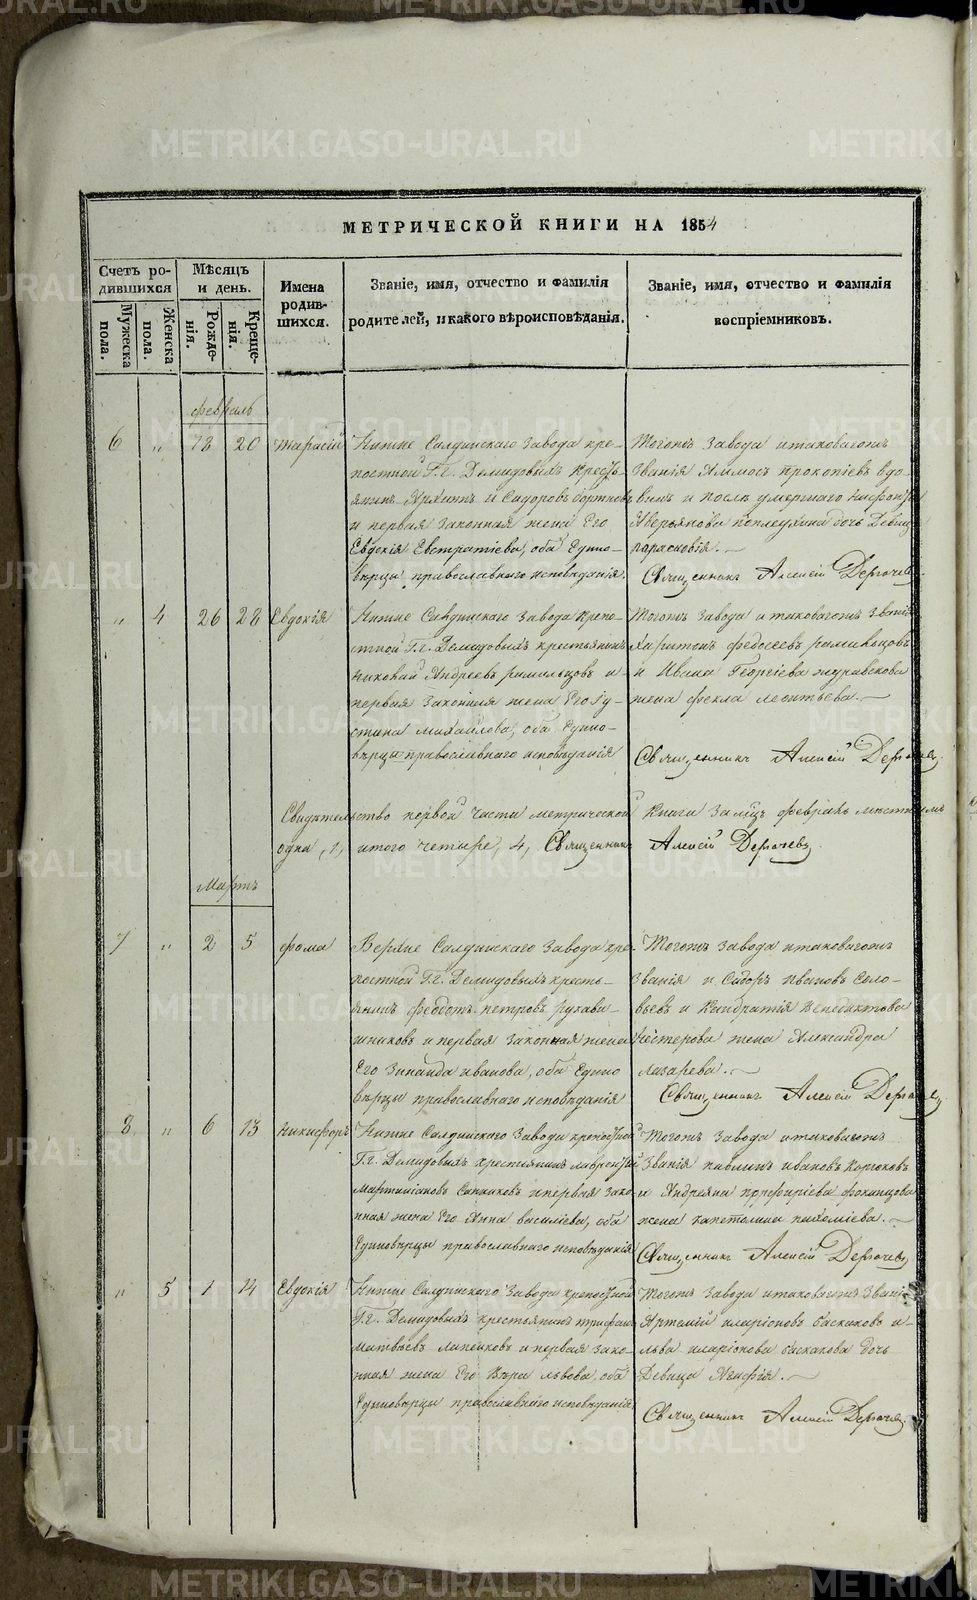 METRIKI.GASO-URAL.RU
МЕТРИЧЕСКОЙ КНИГИ НА 1854
Счетъ ро-
дившихся
Мужеска пола.
Женска пола.
Мѣсяцъ
и день.
Рожде-
нія.
Креще-
нія.
Имена
родив-
шихся.
Званіе, имя, отчество и фамилія
родителей, и какого вѣроисповѣданія.
Званіе, имя, отчество и фамилія
воспріемниковъ.
февраль
6 " 18 20 Тарасій
Нижне Салдинскаго Завода кре-
постной Г.г. Демидовыхъ Кресть-
янинъ Сидоровъ
и первая Законная жена Его
Евдокія Евстратіева, оба Едино-
вѣрцы православнаго исповѣданія.
Тогожъ Завода и таковагожъ
Званія прокопіевъ вдо-
винъ и после умершаго
Аверьянова дочь Девица
парасковія.
Священникъ Алексій Дерючевъ
" 4 26 28 Евдокія
Нижне Салдинскаго Завода Крепо-
стной Г.г. Демидовыхъ крестьянинъ
Николай Андреевъ и
первая Законная жена Его Іу-
стина михайлова, оба Едино-
вѣрцы православнаго исповѣданія
Тогожъ Завода и таковагожъ Званія
Харитонъ федосеевъ
и Ивана Георгіева журавлева
жена фекла леонтьева.
Священникъ Алексій Дерючевъ
Свидетельство первой части метрической Книги За февраль
одна, 1, итого четыре, 4, Священникъ Алексій Дерючевъ
Мартъ
7 " 2 5 фома
Верхне Салдинскаго Завода кре-
постной Г.г. Демидовыхъ кресть-
янинъ феодотъ петровъ рукави-
шниковъ и первая законная жена
Его Зинаида иванова, оба Едино
вѣрцы православнаго исповѣданія
Тогожъ Завода и таковагожъ
Званія и Сидоръ ивановъ Соло-
вьевъ и Кандратія Венедиктова
Нестерова жена Александра
лазарева.
Священникъ Алексій Дерючевъ
8 " 6 13 Никифоръ
Нижне Салдинскаго Завода крепостной
Г.г. Демидовыхъ крестьянинъ лаврентій
Мартиніановъ и первая зако-
нная жена Его Анна василіева, оба
Единовѣрцы православнаго исповѣданія
Тогожъ Завода и таковагожъ
Званія павлинъ ивановъ Корюковъ
и Андреяна
жена капетолина пахоміева.
Священникъ Алексій Дерючевъ
" 5 1 14 Евдокія
Нижне Салдинскаго Завода крепостной
Г.г. Демидовыхъ крестьянинъ трифонъ
матвѣевъ и первая зако-
нная жена Его Вѣра львова, оба
Единовѣрцы православнаго исповѣданія
Тогожъ Завода и таковагожъ Званія
Артемій иларіоновъ баскаковъ и
льва иларіонова баскакова дочь
Девица
Священникъ Алексій Дерючевъ